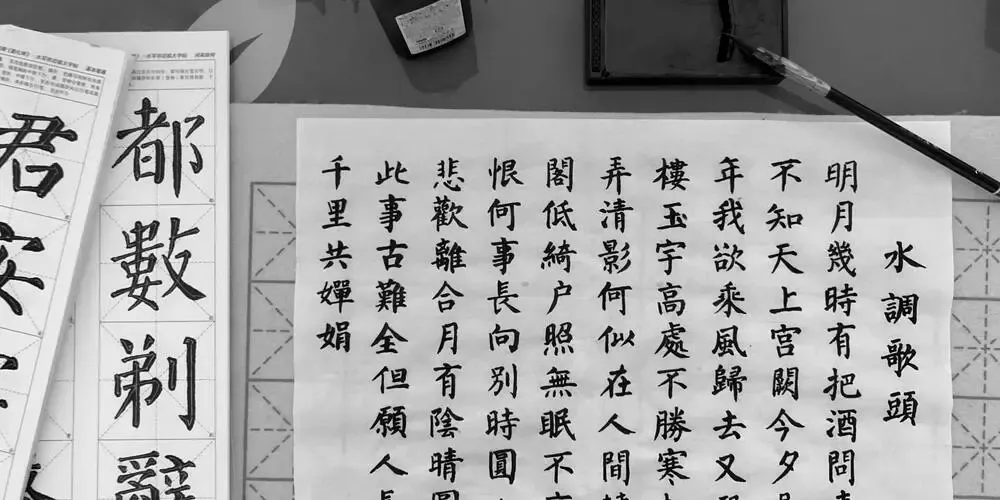 水調歌頭
明月幾時有把酒問
不知天上宮闕今夕
年我欲乘風歸去又
樓玉宇高處不勝寒
弄清影何似在人間
閣低綺户照無眠不
恨何事長向別時圓
悲歡離合月有陰晴
此事古難全但願人
千里共嬋娟
都數剃辭
君安